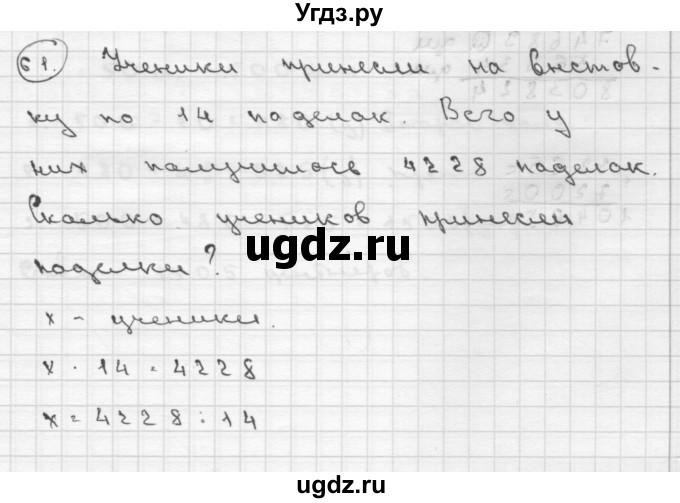 Угдз.ру
61. Ученики принесли на выстав-
ку по 14 поделок. Всего у
них получилось 4228 поделок.
Сколько учеников принесли
ugdz.ru
поделки?
x - ученики.
x · 14 = 4228
x = 4228 : 14
ugdz.ru